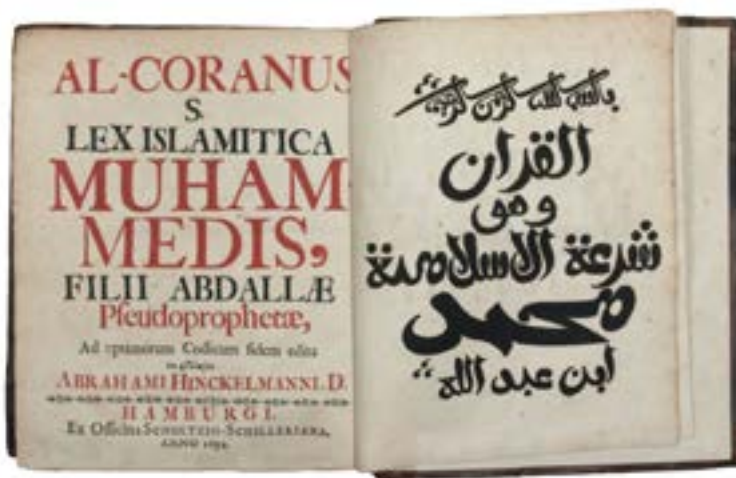 AL-CORANUS
S.
LEX ISLAMITICA
MUHAM-
MEDIS,
FILII ABDALLÆ
Pſeudoprophetæ,
Ad optimorum Codicum fidem edita
ABRAHAMI HINCKELMANNI. D.
HAMBURGI,
Ex Officina SCHULTZIO-SCHILLERIANA,
ANNO
القران
وهو
شرعة الاسلامية
محمد
ابن عبد الله